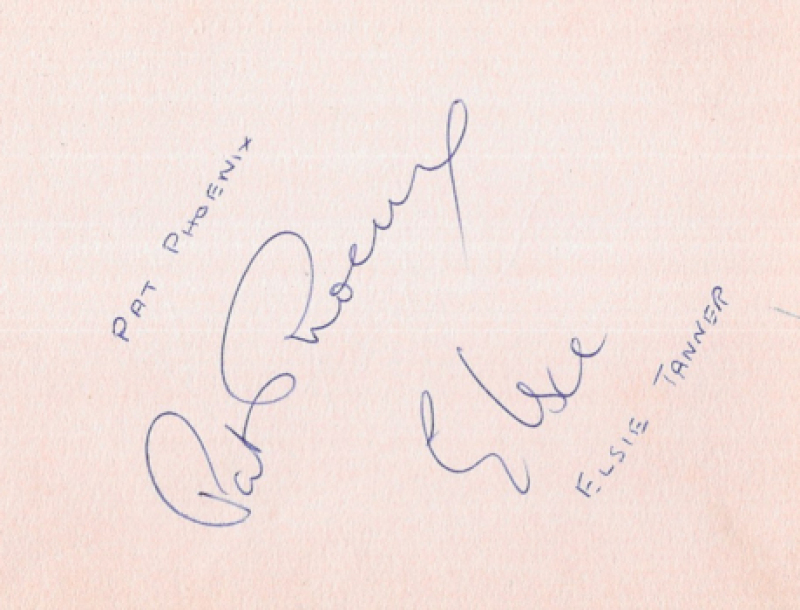 PAT PHOENIX
Pat Phoenix
Elsie
ELSIE TANNER